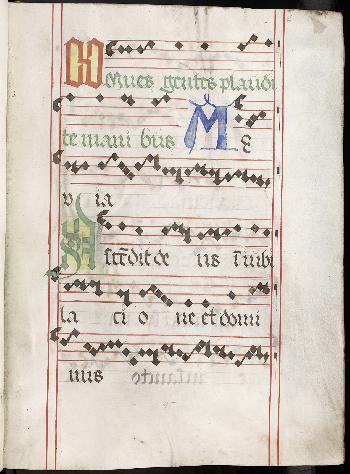 Omnes gentes plaudi
te mani bus A E
v ia
Ascēdit de us ī iubi
la ci o ne et domi
nus